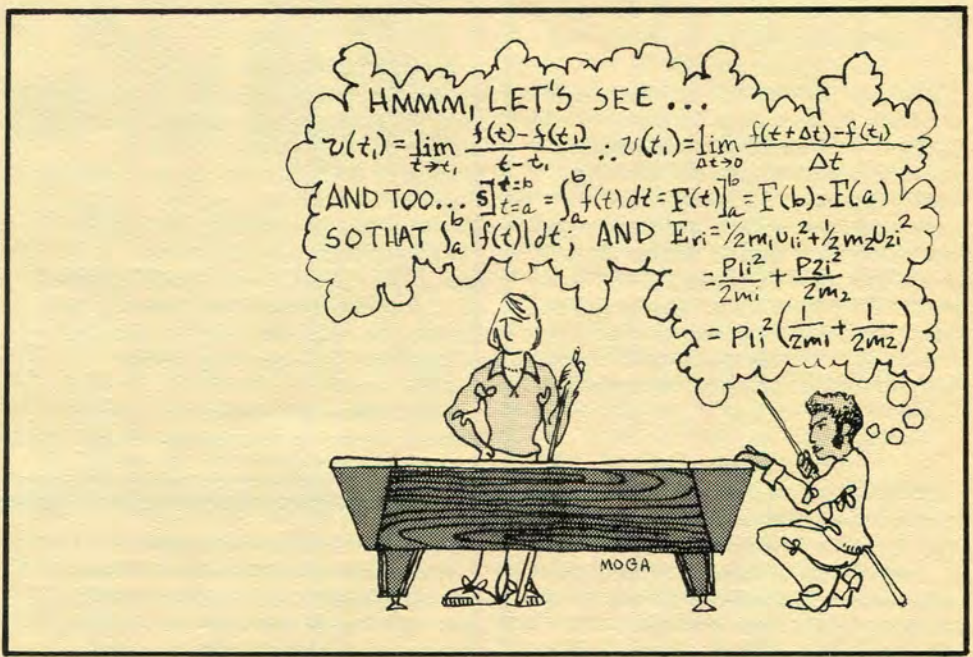 HMMM, LET'S SEE ...
v(t₁) = lim t→t₁ f(t) - f(t₁) / t - t₁ ∴ v(t₁) = lim Δt→0 f(t + Δt) - f(t₁) / Δt
AND TOO... s]t=b t=a = ∫ₐᵇ f(t) dt = F(t)]ₐᵇ = F(b) - F(a)
SO THAT ∫ₐᵇ |f(t)| dt; AND Eri = ½ m₁ υ₁i² + ½ m₂ υ₂i²
= P1i² / 2mi + P2i² / 2m₂
= P1i² (1 / 2m1 + 1 / 2m2)
MOGA